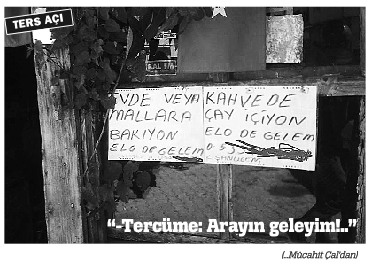 TERS AÇI
EVDE VEYA
MALLARA
BAKIYON
ELO DE GELEM
KAHVEDE
ÇAY İÇİYON
ELO DE GELEM
05
“-Tercüme: Arayın geleyim!..”
(...Mücahit Çal'dan)